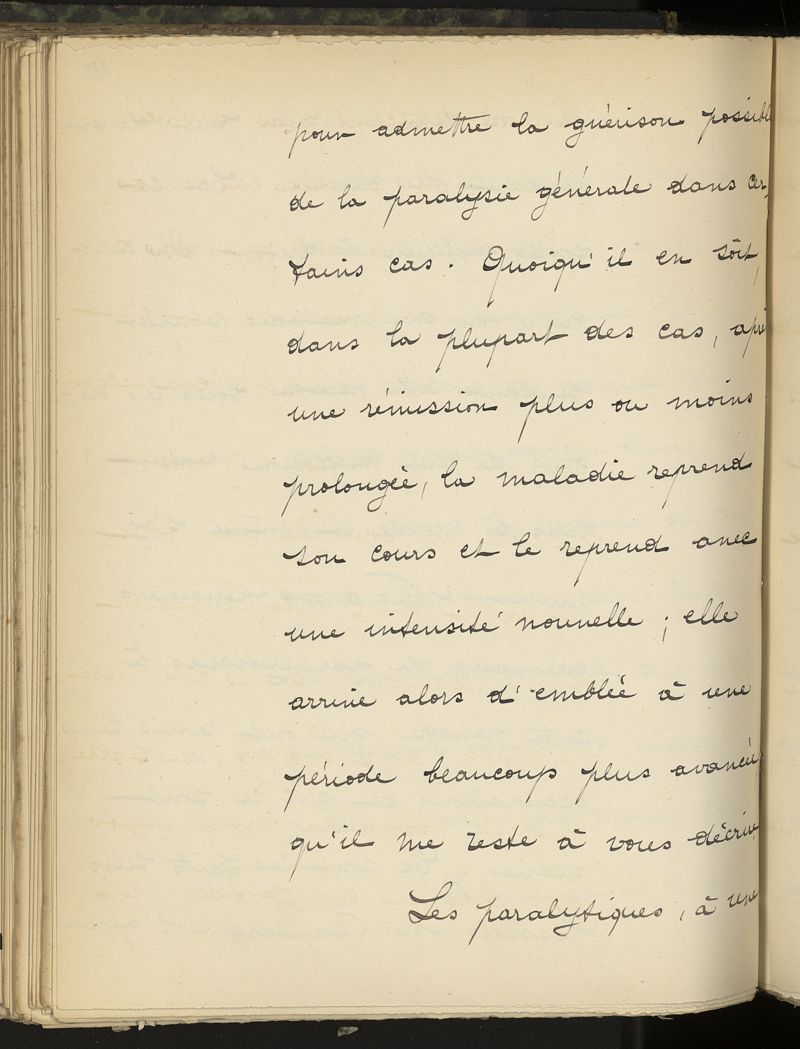 pour admettre la guérison possible
de la paralysie générale dans cer-
tains cas. Quoiqu'il en soit,
dans la plupart des cas, après
une rémission plus ou moins
prolongée, la maladie reprend
son cours et le reprend avec
une intensité nouvelle ; elle
arrive alors d'emblée à une
période beaucoup plus avancée,
qu'il me reste à vous décrire.
Les paralytiques, à une